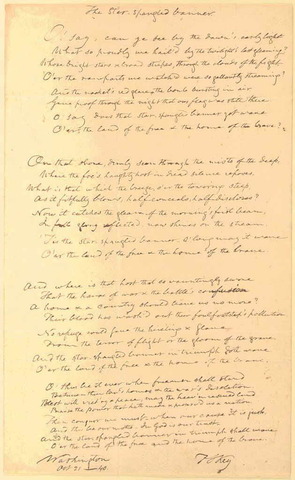 The Star-spangled banner
O! say, can ye see by the dawn's early light
What so proudly we hail'd by the twilight's last gleaming?
Whose bright stars & broad stripes, through the clouds of the fight,
O'er the ramparts we watch'd were so gallantly streaming?
And the rocket's red glare, the bomb bursting in air
Gave proof through the night that our flag was still there
O! say, does that star-spangled banner yet wave
O'er the land of the free & the home of the brave?
On that shore, dimly seen through the mists of the deep,
Where the foe's haughty host in dread silence reposes,
What is that which the breeze, o'er the towering steep
As it fitfully blows, half conceals, half discloses?
Now it catches the gleam of the morning's first beam,
In full glory reflected now shines on the stream
'Tis the star-spangled banner O! long may it wave
O'er the land of the free & the home of the brave
And where is that host that so vauntingly swore
That the havoc of war & the battle's confusion
A home & a country should leave us no more?
Their blood has wash'd out their foul footstep's pollution
No refuge could save the hireling & slave
From the terror of flight or the gloom of the grave
And the star-spangled banner in triumph doth wave
O'er the land of the free & the home of the brave
O! thus be it ever when freemen shall stand
Between their lov'd homes & the war's desolation
Blest with vict'ry & peace, may the heav'n rescued land
Praise the power that hath made & preserv'd us a nation
Then conquer we must, when our cause it is just
And this be our motto, In God is our trust
And the star-spangled banner in triumph shall wave
O'er the land of the free and the home of the brave
Washington
Oct 21 — 40
F S Key